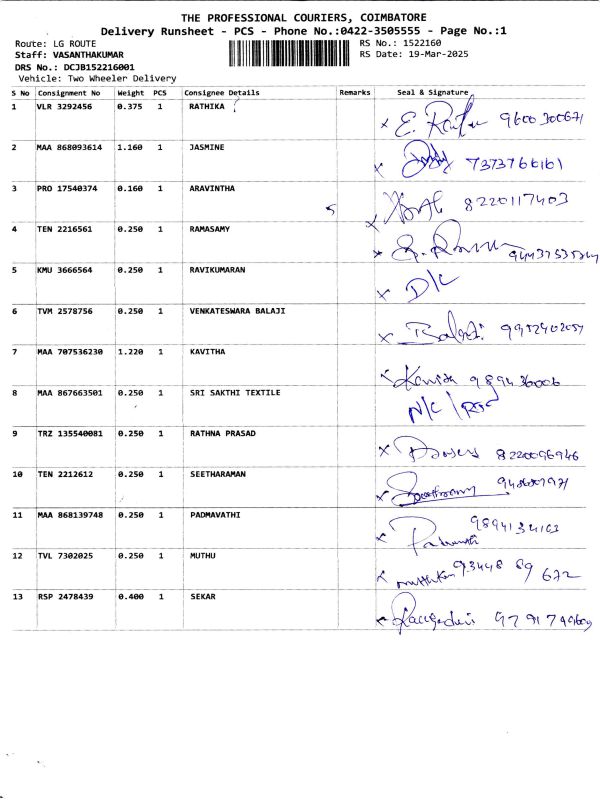 THE PROFESSIONAL COURIERS, COIMBATORE
Delivery Runsheet - PCS - Phone No.:0422-3505555 - Page No.:1
Route: LG ROUTE RS No.: 1522160
Staff: VASANTHAKUMAR RS Date: 19-Mar-2025
DRS No.: DCJB152216001
Vehicle: Two Wheeler Delivery
S No Consignment No Weight PCS Consignee Details Remarks Seal & Signature
1 VLR 3292456 0.375 1 RATHIKA
2 MAA 868093614 1.160 1 JASMINE 7373766161
3 PRO 17540374 0.160 1 ARAVINTHA 8220117403
4 TEN 2216561 0.250 1 RAMASAMY
5 KMU 3666564 0.250 1 RAVIKUMARAN D/C
6 TVM 2578756 0.250 1 VENKATESWARA BALAJI Balaji 9952402057
7 MAA 707536230 1.220 1 KAVITHA 989436006
8 MAA 867663501 0.250 1 SRI SAKTHI TEXTILE N/C
9 TRZ 135540081 0.250 1 RATHNA PRASAD 8220096946
10 TEN 2212612 0.250 1 SEETHARAMAN
11 MAA 868139748 0.250 1 PADMAVATHI 9894134103
12 TVL 7302025 0.250 1 MUTHU 93448 89 672
13 RSP 2478439 0.400 1 SEKAR